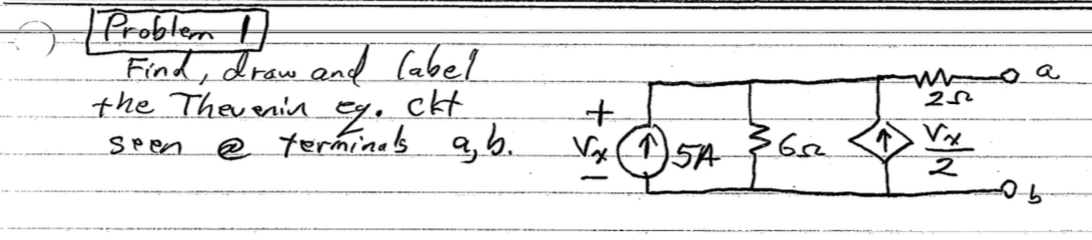 Problem 1
Find, draw and label
the Thevenin eq. ckt
seen @ terminals a,b.
+
Vx
−
5A
6Ω
Vx
2
2Ω
a
b